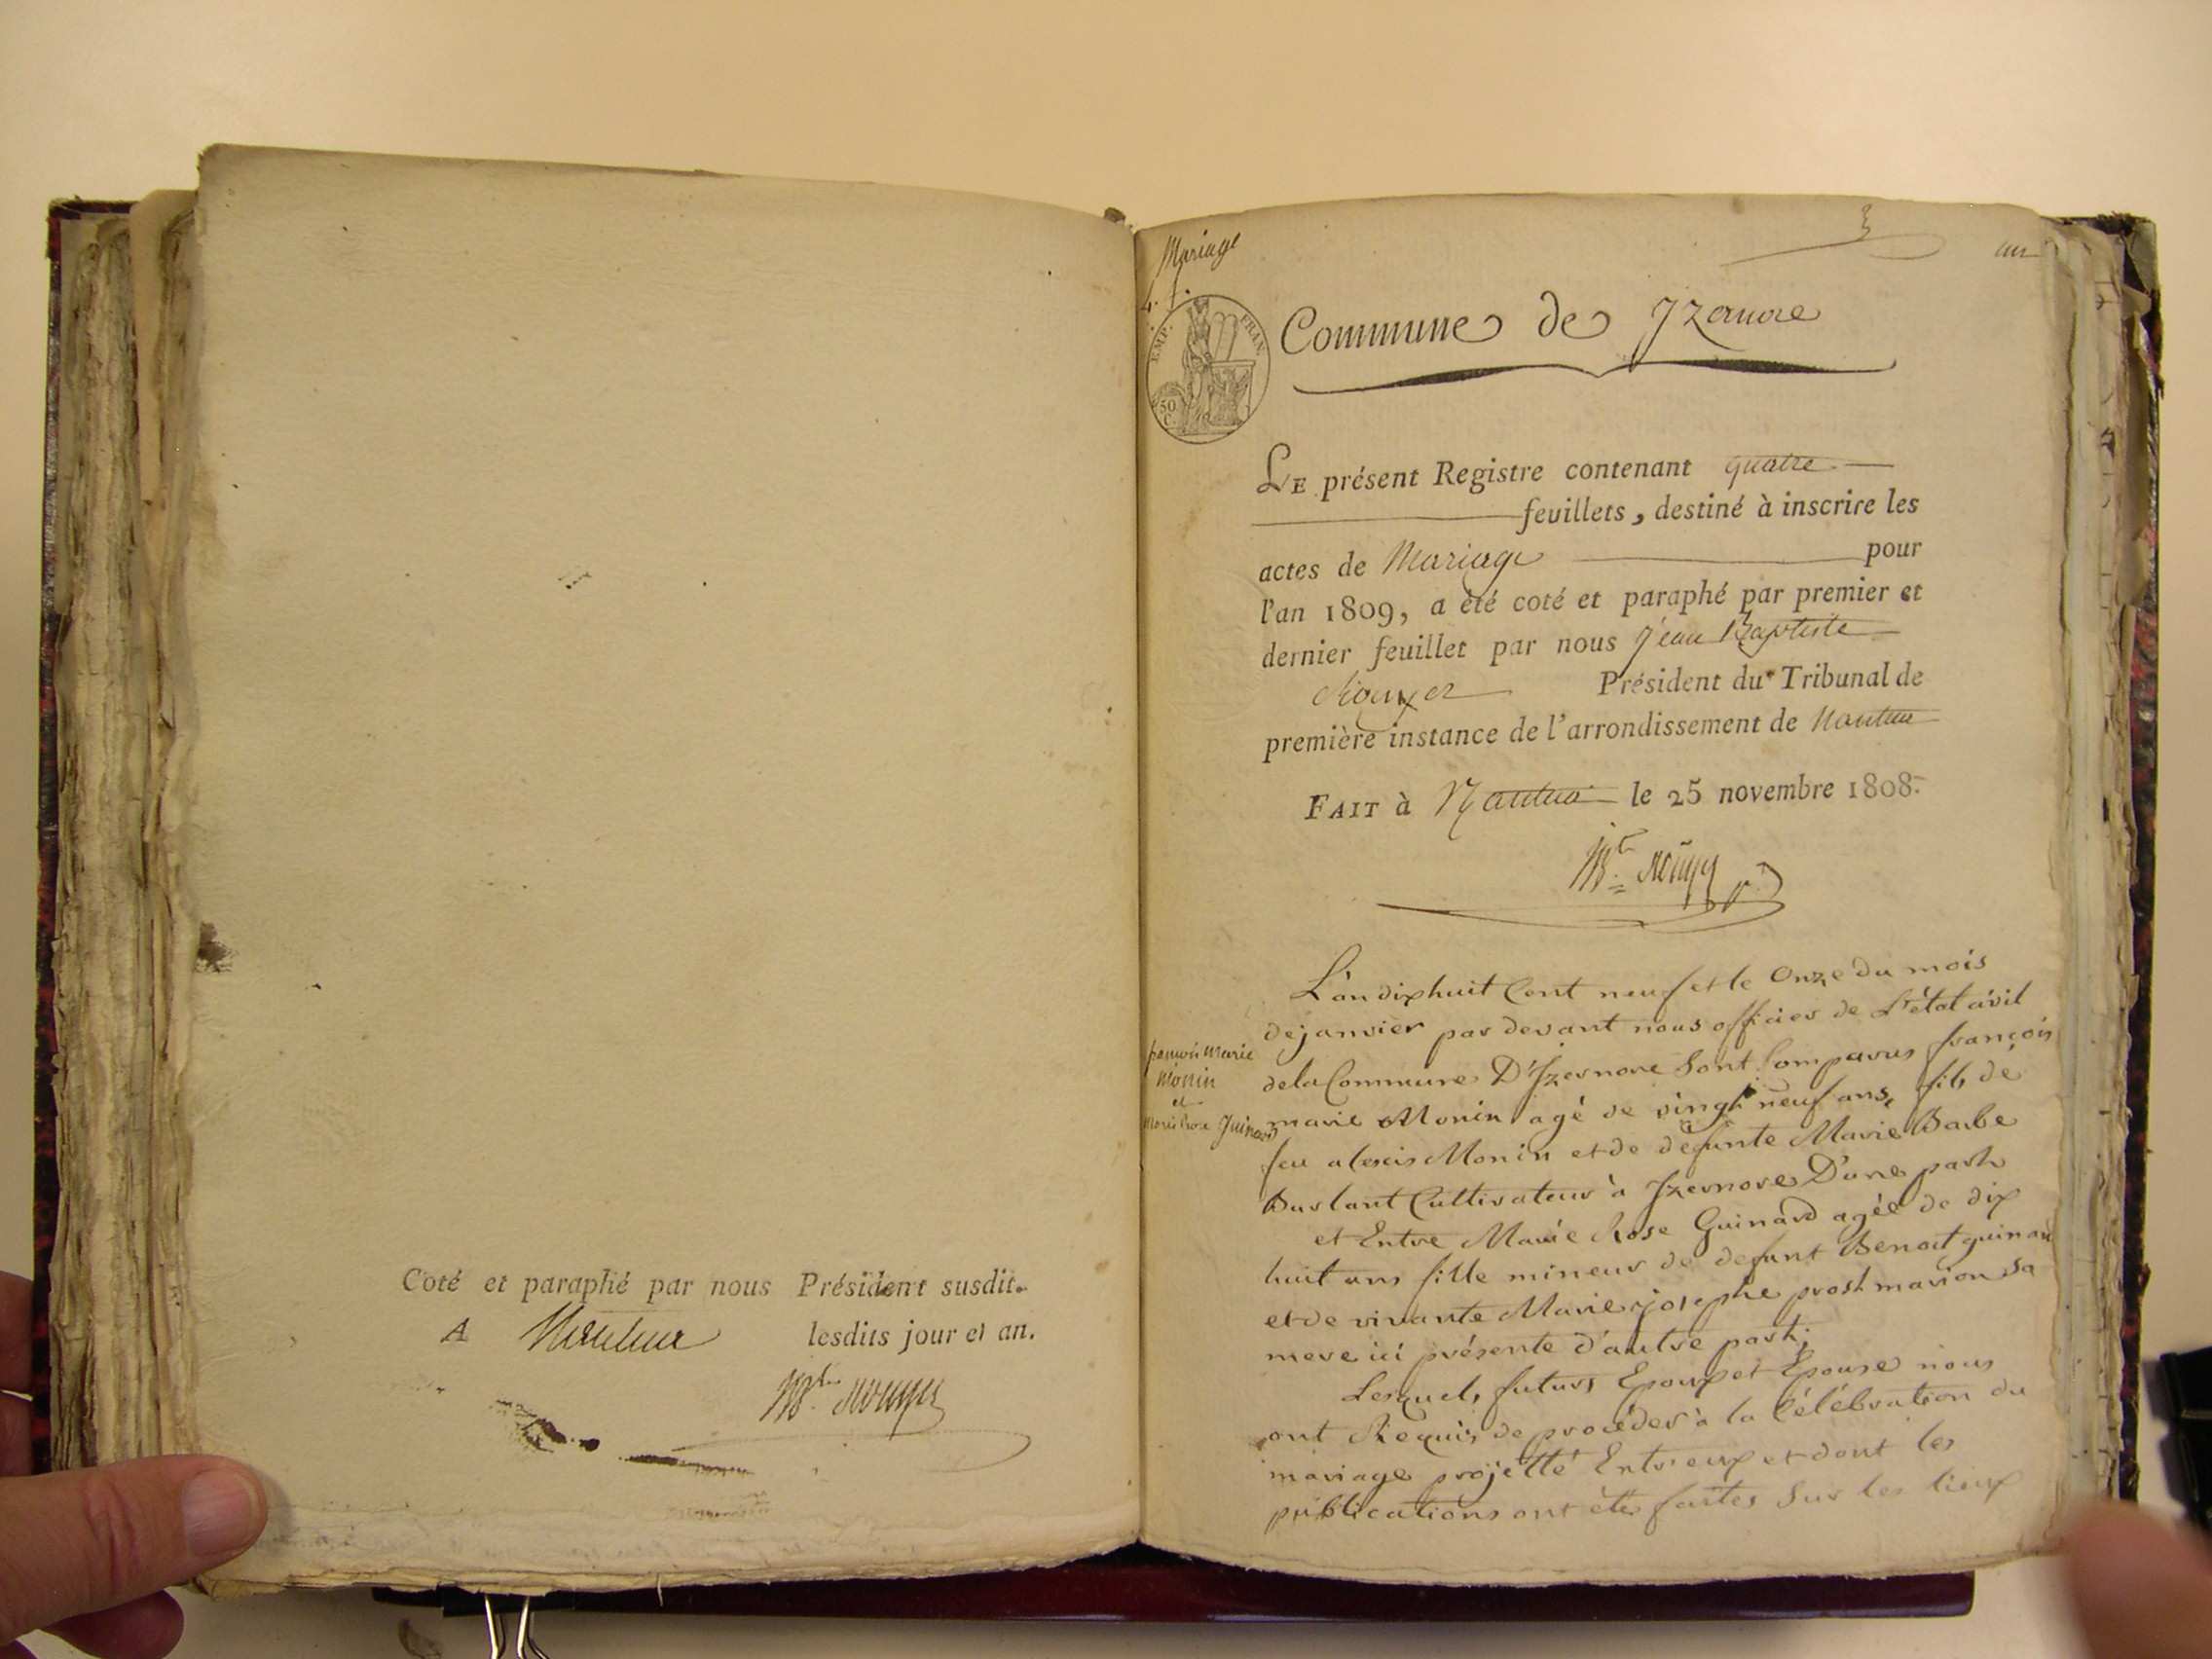 Coté et paraphé par nous Président susdit.
A Nantua lesdits jour et an.
Mariage
EMP. FRAN.
50 C.
Commune de Izernore
LE présent Registre contenant quatre
feuillets, destiné à inscrire les
actes de Mariage pour
l'an 1809, a été coté et paraphé par premier et
dernier feuillet par nous Jean Baptiste
Président du Tribunal de
première instance de l'arrondissement de Nantua
FAIT à Nantua le 25 novembre 1808.
L'an dix huit Cent neuf et le Onze du mois
de janvier par devant nous officier de L'état civil
de la Commune D'Izernore Sont Comparus françois
marie Monin agé de vingt neuf ans, fils de
feu alexis Monin et de défunte Marie Barbe
Burlant Cultivateur à Izernore D'une part
et Entre Marie Rose Guinard agée de dix
huit ans fille mineur de defunt Benoit guinard
et de vivante Marie josephe prost marion sa
mere ici présente d'autre part;
Lesquels futurs Epoux et Epouse nous
ont Requis de procéder à la Célébration du
mariage projetté Entr'eux et dont les
publications ont été faites Sur les lieux
françois marie
Monin
et
Marie Rose Guinard